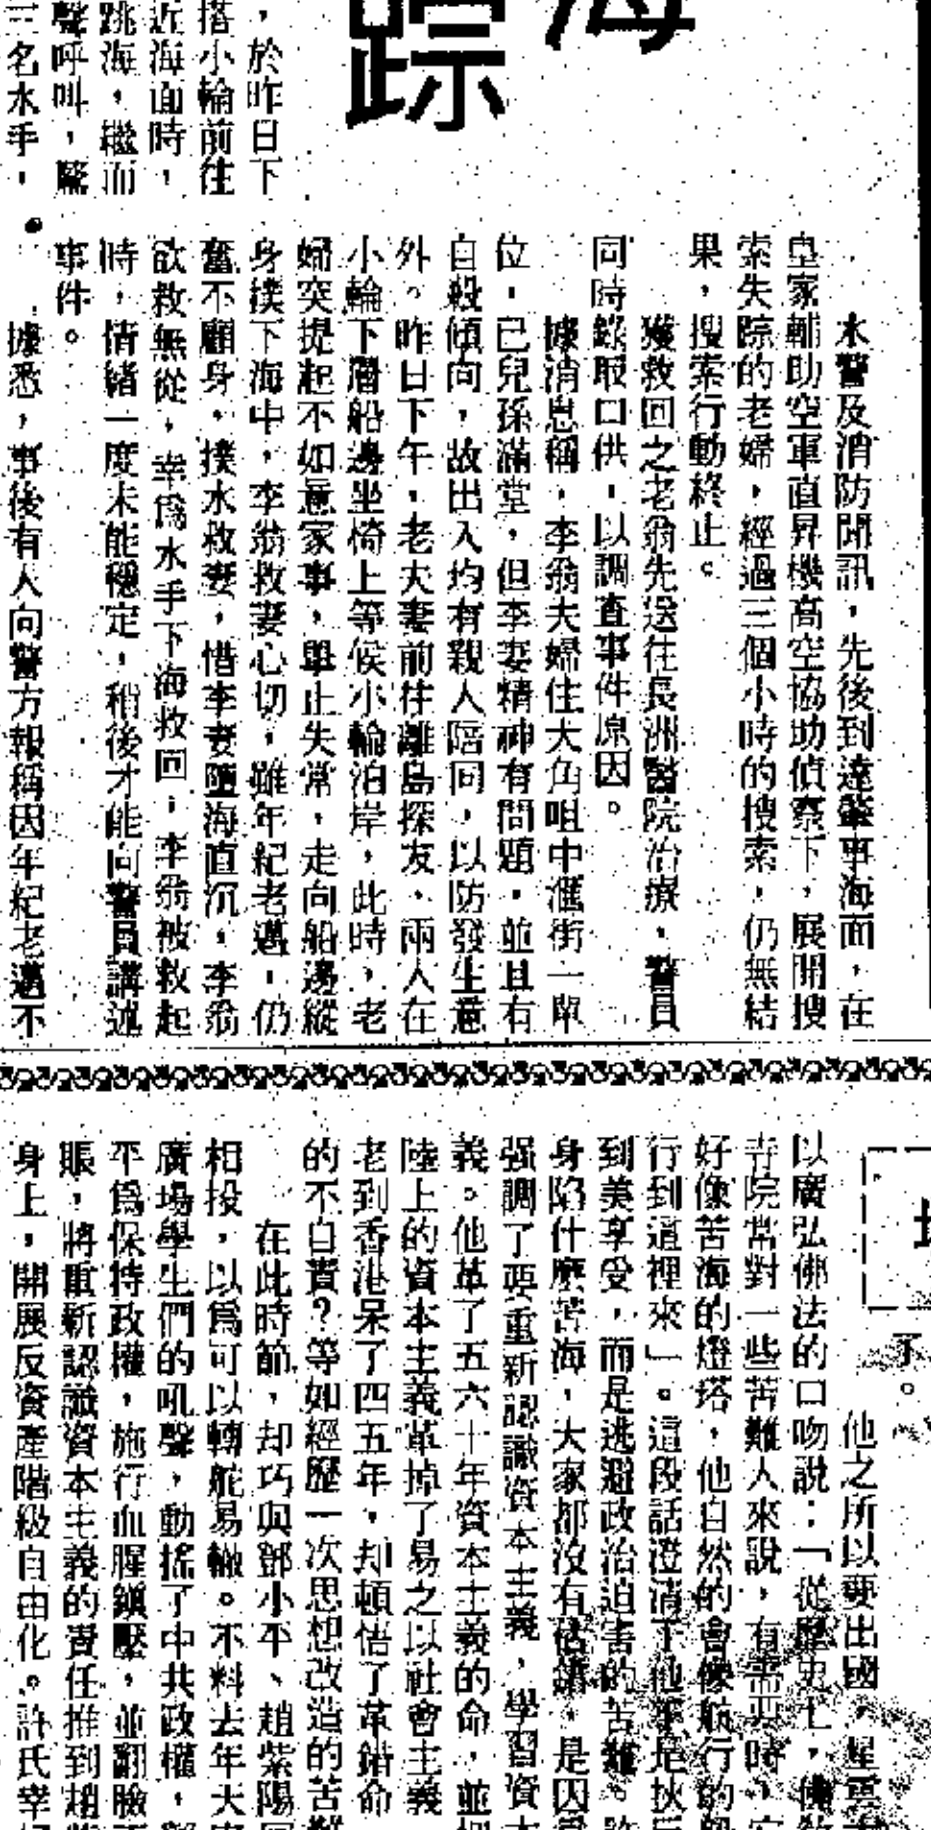 海
踪
，於昨日下
搭小輪前往
近海面時，
跳海，繼而
聲呼叫，驚
三名水手，
水警及消防聞訊，先後到達肇事海面，在
皇家輔助空軍直昇機高空協助偵察下，展開搜
索失踪的老婦，經過三個小時的搜索，仍無結
果，搜索行動終止。
獲救回之老翁先送往長洲醫院治療，警員
同時錄取口供，以調查事件原因。
據消息稱，李翁夫婦住大角咀中滙街一單
位，已兒孫滿堂，但李妻精神有問題，並且有
自殺傾向，故出入均有親人陪同，以防發生意
外。昨日下午，老夫妻前往離島探友，兩人在
小輪下層船邊坐椅上等候小輪泊岸，此時，老
婦突提起不如意家事，舉止失常，走向船邊縱
身撲下海中，李翁救妻心切，雖年紀老邁，仍
奮不顧身，撲水救妻，惜李妻墮海直沉，李翁
欲救無從，幸爲水手下海救回，李翁被救起
時，情緒一度未能穩定，稍後才能向警員講述
事件。
據悉，事後有人向警方報稱因年紀老邁不
了。
他之所以要出國，星雲
以廣弘佛法的口吻說：「從歷史上，佛教
寺院常對一些苦難人來說，有需要時，
好像苦海的燈塔，他自然的會像航行的
行到這裡來」。這段話澄清了他不是
到美享受，而是逃避政治迫害的苦難。
身陷什麼苦海，大家都沒有估錯，是因
强調了要重新認識資本主義，學習資本
義。他革了五六十年資本主義的命，並
陸上的資本主義革掉了易之以社會主義
老到香港呆了四五年，却頓悟了革錯命
的不自責？等如經歷一次思想改造的苦
在此時節，却巧與鄧小平、趙紫陽
相投，以爲可以轉舵易轍。不料去年大
廣場學生們的吼聲，動搖了中共政權，
平爲保持政權，施行血腥鎭壓，並翻臉
賬，將重新認識資本主義的責任推到趙
身上，開展反資產階級自由化。許氏幸